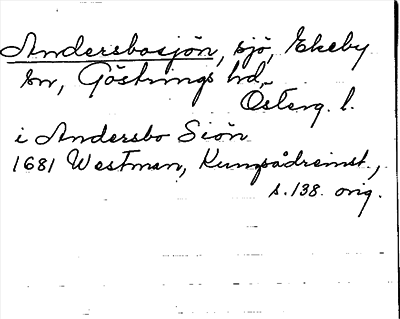 Andersbosjön, sjö, Ekeby
sn, Göstrings hd,
Österg. l.
i Andersbo Siön
1681 Westman, Kunskådreinst.,
s. 138. orig.